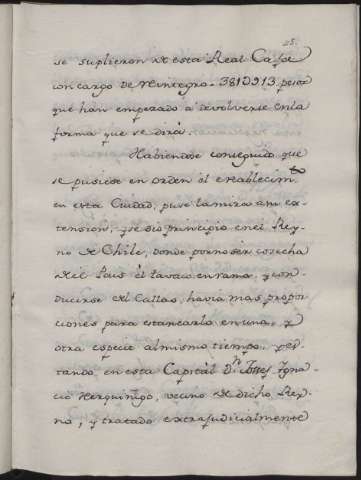 25.
se suplieron de esta Real Caja
con cargo de Reintegro 381Ɔ913. pesos
que han empezado à devolverse en la
forma que se dirá
Habiendose conseguido que
se pusiese en orden el establecim.to
en esta Ciudad, puse la mira a su ex-
tension, y se dió principio en el Rey-
no de Chile, donde por no ser cosecha
del Pais el tavaco en rama, y con-
ducirse del Callao, havia mas propor-
ciones para estancarlo en una, y
otra especie al mismo tiempo, y es-
tando en esta Capital D.n Josef Igna-
cio Herquiñigo, vecino de dicho Rey-
no, y tratado extrajudicialmente